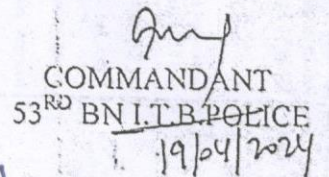 COMMANDANT
53RD BN I.T.B.POLICE
19/04/2024